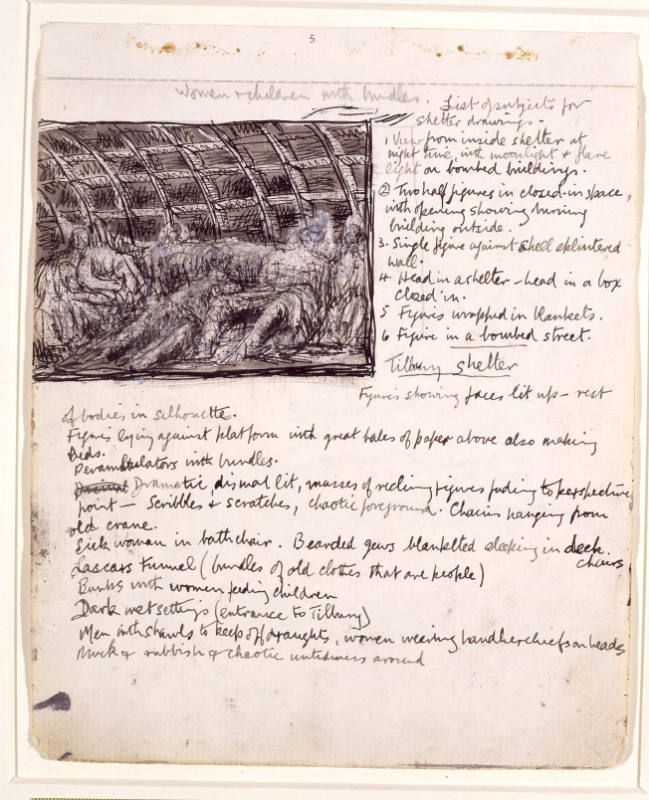 5
Women & children with bundles.
List of subjects for
shelter drawings.
1 View from inside shelter at
night time, with moonlight & flare
light on bombed buildings.
② Two half figures in closed-in space,
with opening showing burning
building outside.
3. Single figure against shell splintered
wall.
4 Head in a shelter – head in a box
closed in.
5 Figures wrapped in blankets.
6 Figure in a bombed street.
Tilbury shelter
Figures showing faces lit up – rest
of bodies in silhouette.
Figures lying against platform with great bales of paper above also making
beds.
Perambulators with bundles.
Dramatic, dismal lit, masses of reclining figures fading to perspective
point – Scribbles & scratches, chaotic foreground. Chains hanging from
old crane.
Sick woman in bathchair. Bearded Jews blanketed sleeping in deck
chairs
Lascars Tunnel (bundles of old clothes that are people)
Bunks with women feeding children
Dark wet settings (entrance to Tilbury)
Men with shawls to keep off draughts, women wearing handkerchiefs on heads
Muck & rubbish & chaotic untidiness around